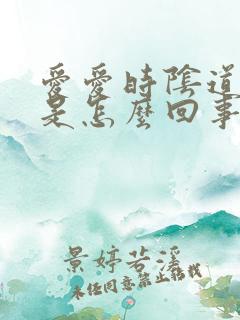 愛愛時陰道
是怎麼回事
景婷若溪
未经同意禁止转载